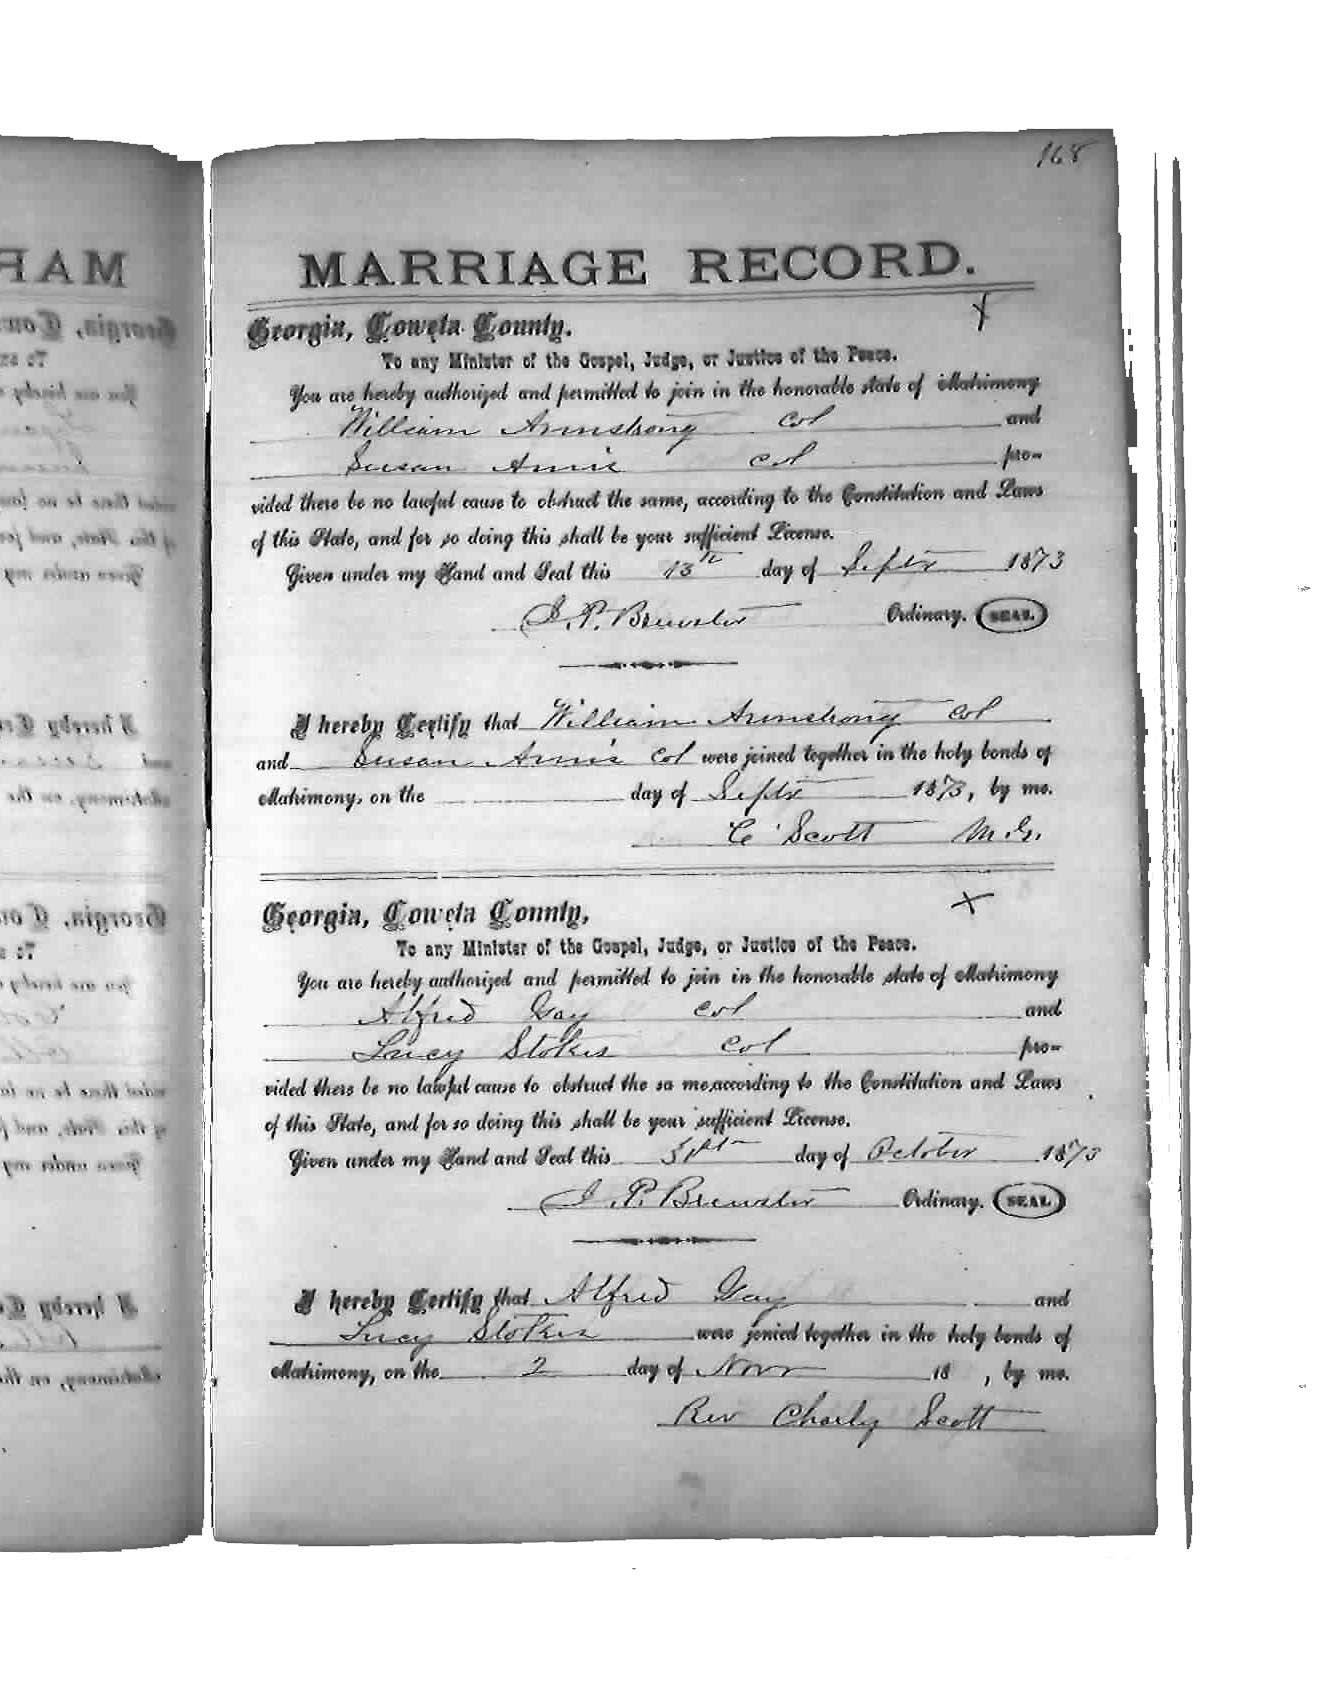 168
MARRIAGE RECORD.
Georgia, Coweta County.
To any Minister of the Gospel, Judge, or Justice of the Peace.
You are hereby authorized and permitted to join in the honorable state of Matrimony
William Armstrong col and
Susan Amis col pro-
vided there be no lawful cause to obstruct the same, according to the Constitution and Laws
of this State, and for so doing this shall be your sufficient License.
Given under my Hand and Seal this 13th day of Septr 1873
J. P. Brewster Ordinary. SEAL.
I hereby Certify that William Armstrong col
and Susan Amis col were joined together in the holy bonds of
Matrimony, on the day of Septr 1873, by me.
C Scott M.G.
Georgia, Coweta County,
To any Minister of the Gospel, Judge, or Justice of the Peace.
You are hereby authorized and permitted to join in the honorable state of Matrimony
Alfred Gay col and
Lucy Stokes col pro-
vided there be no lawful cause to obstruct the sa me, according to the Constitution and Laws
of this State, and for so doing this shall be your sufficient License.
Given under my Hand and Seal this 31st day of October 1873
J. P. Brewster Ordinary. SEAL
I hereby Certify that Alfred Gay and
Lucy Stokes were jonied together in the holy bonds of
Matrimony, on the 2 day of Novr 18 , by me.
Rev Charly Scott